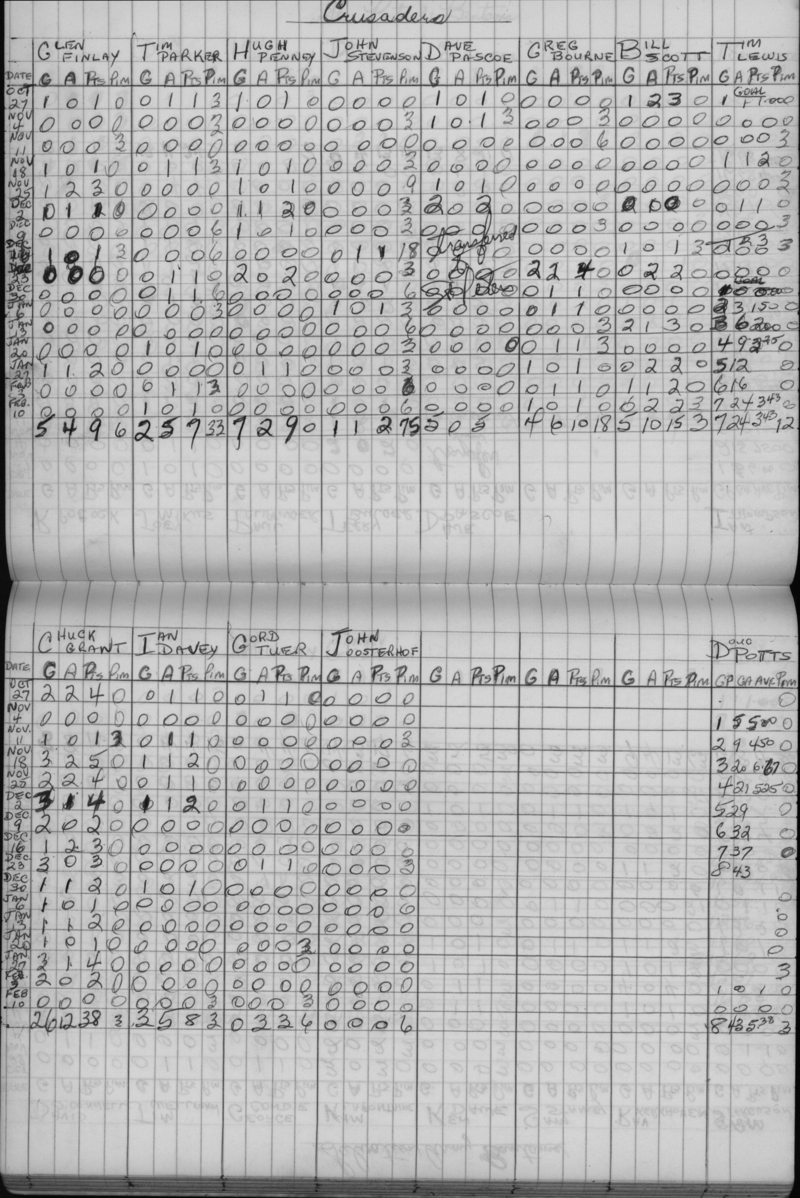 Crusaders
GLEN FINLAY TIM PARKER HUGH PENNEY JOHN STEVENSON DAVE PASCOE GREG BOURNE BILL SCOTT TIM LEWIS
DATE G A Pts Pim G A Pts Pim G A Pts Pim G A Pts Pim G A Pts Pim G A Pts Pim G A Pts Pim G A Pts Pim
OCT 27 1 0 1 0 0 1 1 3 1 0 1 0 0 0 0 0 1 0 1 0 0 0 0 0 1 2 3 0
NOV 4 0 0 0 0 0 0 0 3 0 0 0 0 0 0 0 3 1 0 1 3 0 0 0 3 0 0 0 0 0 0 0 0
NOV 11 0 0 0 3 0 0 0 2 0 0 0 0 0 0 0 3 0 0 0 0 0 0 0 6 0 0 0 0 0 0 0 3
NOV 18 1 0 1 0 0 1 1 3 1 0 1 0 0 0 0 3 0 0 0 0 0 0 0 0 0 0 0 0 1 1 2 0
NOV 25 1 2 3 0 0 0 0 0 1 0 1 0 0 0 0 9 1 0 1 0 0 0 0 0 0 0 0 0
DEC 2 0 1 1 0 0 0 0 0 1 1 2 0 0 0 0 3 2 0 2 0 0 0 0 0 2 0 0 0 0 1 1 0
DEC 9 0 0 0 0 0 0 0 6 1 0 1 0 0 0 0 3 0 0 0 0 0 0 0 3 0 0 0 0 0 0 0 3
DEC 16 1 0 1 3 0 0 0 6 0 0 0 0 0 1 1 18 transfered 0 0 0 0 1 0 1 3
DEC 23 0 0 0 0 0 1 1 0 2 0 2 0 0 0 0 3 2 2 4 0 0 2 2 0 0 0 0 0
DEC 30 0 0 0 0 0 1 1 6 0 0 0 0 0 0 0 6 0 1 1 0 0 0 0 0
JAN 6 0 0 0 0 0 0 0 3 0 0 0 0 1 0 1 3 0 0 0 0 0 1 1 0 0 0 0 0 2 3 150 0
JAN 13 0 0 0 0 0 0 0 0 0 0 0 0 0 0 0 6 0 0 0 0 0 0 0 3 2 1 3 0 3 6 200 0
JAN 20 0 0 0 0 1 0 1 0 0 0 0 0 0 0 0 3 0 0 0 0 0 1 1 3 0 0 0 0 4 9 225 0
JAN 27 1 1 2 0 0 0 0 0 0 1 1 0 0 0 0 3 0 0 0 0 1 0 1 0 0 2 2 0 5 12
FEB 3 0 0 0 0 0 1 1 3 0 0 0 0 0 0 0 6 0 0 0 0 0 1 1 0 1 1 2 0 6 16 0
FEB. 10 0 0 0 0 1 0 1 0 0 0 0 0 0 0 0 6 0 0 0 0 1 0 1 0 0 2 2 3 7 24 343 0
5 4 9 6 2 5 7 33 7 2 9 0 1 1 2 75 5 0 5 4 6 10 18 5 10 15 3 7 24 343 12
CHUCK GRANT IAN DAVEY GORD TUER JOHN OOSTERHOF DOUG POTTS
DATE G A Pts Pim G A Pts Pim G A Pts Pim G A Pts Pim G A Pts Pim G A Pts Pim G A Pts Pim GP GA AVE Pim
OCT 27 2 2 4 0 0 1 1 0 0 1 1 0 0 0 0 0
NOV 4 0 0 0 0 0 0 0 0 0 0 0 0 0 0 0 0 1 5 500 0
NOV. 11 1 0 1 3 0 1 1 0 0 0 0 0 0 0 0 3 2 9 450 0
NOV 18 3 2 5 0 1 1 2 0 0 0 0 0 0 0 0 0 3 20 6.67 0
NOV 25 2 2 4 0 0 1 1 0 0 0 0 0 0 0 0 0 4 21 525 0
DEC 2 3 1 4 0 1 1 2 0 0 1 1 0 0 0 0 0 5 29 0
DEC 9 2 0 2 0 0 0 0 0 0 0 0 0 0 0 0 0 6 32 0
DEC 16 1 2 3 0 0 0 0 0 0 0 0 0 0 0 0 0 7 37 0
DEC 23 3 0 3 0 0 0 0 0 0 1 1 0 0 0 0 3 8 43
DEC 30 1 1 2 0 1 0 1 0 0 0 0 0 0 0 0 0 0
JAN 6 1 0 1 0 0 0 0 0 0 0 0 0 0 0 0 0 0
JAN 13 1 1 2 0 0 0 0 0 0 0 0 0 0 0 0 0 0
JAN 20 1 0 1 0 0 0 0 0 0 0 0 3 0 0 0 0 0
JAN 27 3 1 4 0 0 0 0 0 0 0 0 0 0 0 0 0 3
FEB 3 2 0 2 0 0 0 0 0 0 0 0 0 0 0 0 0 1 0 1 0
FEB 10 0 0 0 0 0 0 0 3 0 0 0 3 0 0 0 0 0 0 0 0
26 12 38 3 3 5 8 3 0 3 3 6 0 0 0 6 8 43 538 3